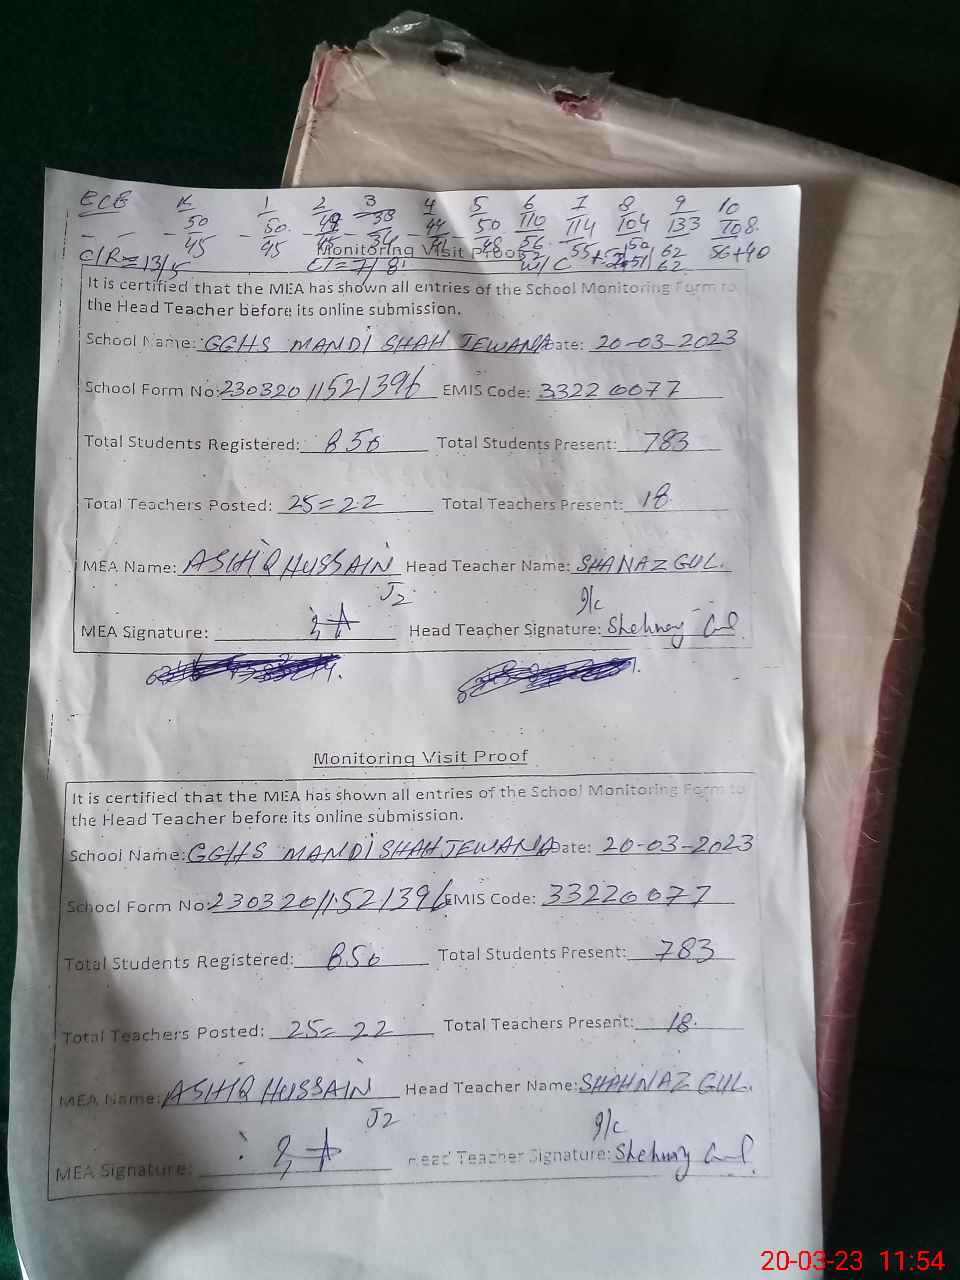 ECE K 1 2 3 4 5 6 7 8 9 10
50 50. 49 38 44 50 110 114 104 133 108.
- - 45 - 45 45 34 41 48 56 55+ 50 62 56+40
C/R=13/5 C1=7/8 W/C 62
Monitoring Visit Proof
It is certified that the MEA has shown all entries of the School Monitoring Form to
the Head Teacher before its online submission.
School Name: GGHS MANDI SHAH JEWANA Date: 20-03-2023
School Form No: 23032011521396 EMIS Code: 33220077
Total Students Registered: 850 Total Students Present: 783
Total Teachers Posted: 25=22 Total Teachers Present: 18
MEA Name: ASHIQ HUSSAIN Head Teacher Name: SHANAZ GUL.
J2 I/c
MEA Signature: Head Teacher Signature: Shehnaz Gul
Monitoring Visit Proof
It is certified that the MEA has shown all entries of the School Monitoring Form to
the Head Teacher before its online submission.
School Name: GGHS MANDI SHAH JEWANA Date: 20-03-2023
School Form No: 23032011521396 EMIS Code: 33220077
Total Students Registered: 850 Total Students Present: 783
Total Teachers Posted: 25=22 Total Teachers Present: 18.
MEA Name: ASHIQ HUSSAIN Head Teacher Name: SHAHNAZ GUL.
J2 I/c
MEA Signature: Head Teacher Signature: Shehnaz Gul
20-03-23 11:54